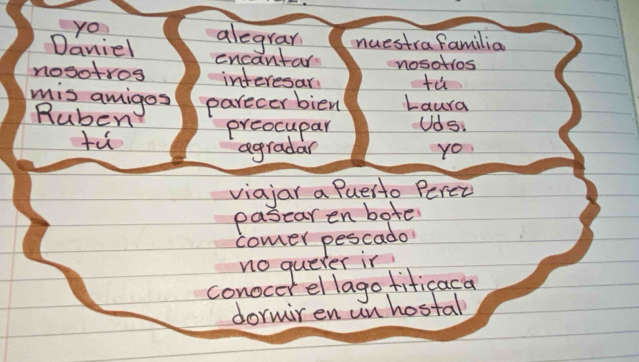 yo
Daniel
nosotros
mis amigos
Ruben
tú
alegrar
encantar
interesar
parecer bien
preocupar
agradar
nuestra familia
nosotros
tú
Laura
Uds.
yo
viajar a Puerto Perez
pasear en bote
comer pescado
no querer ir
conocer el lago titicaca
dormir en un hostal